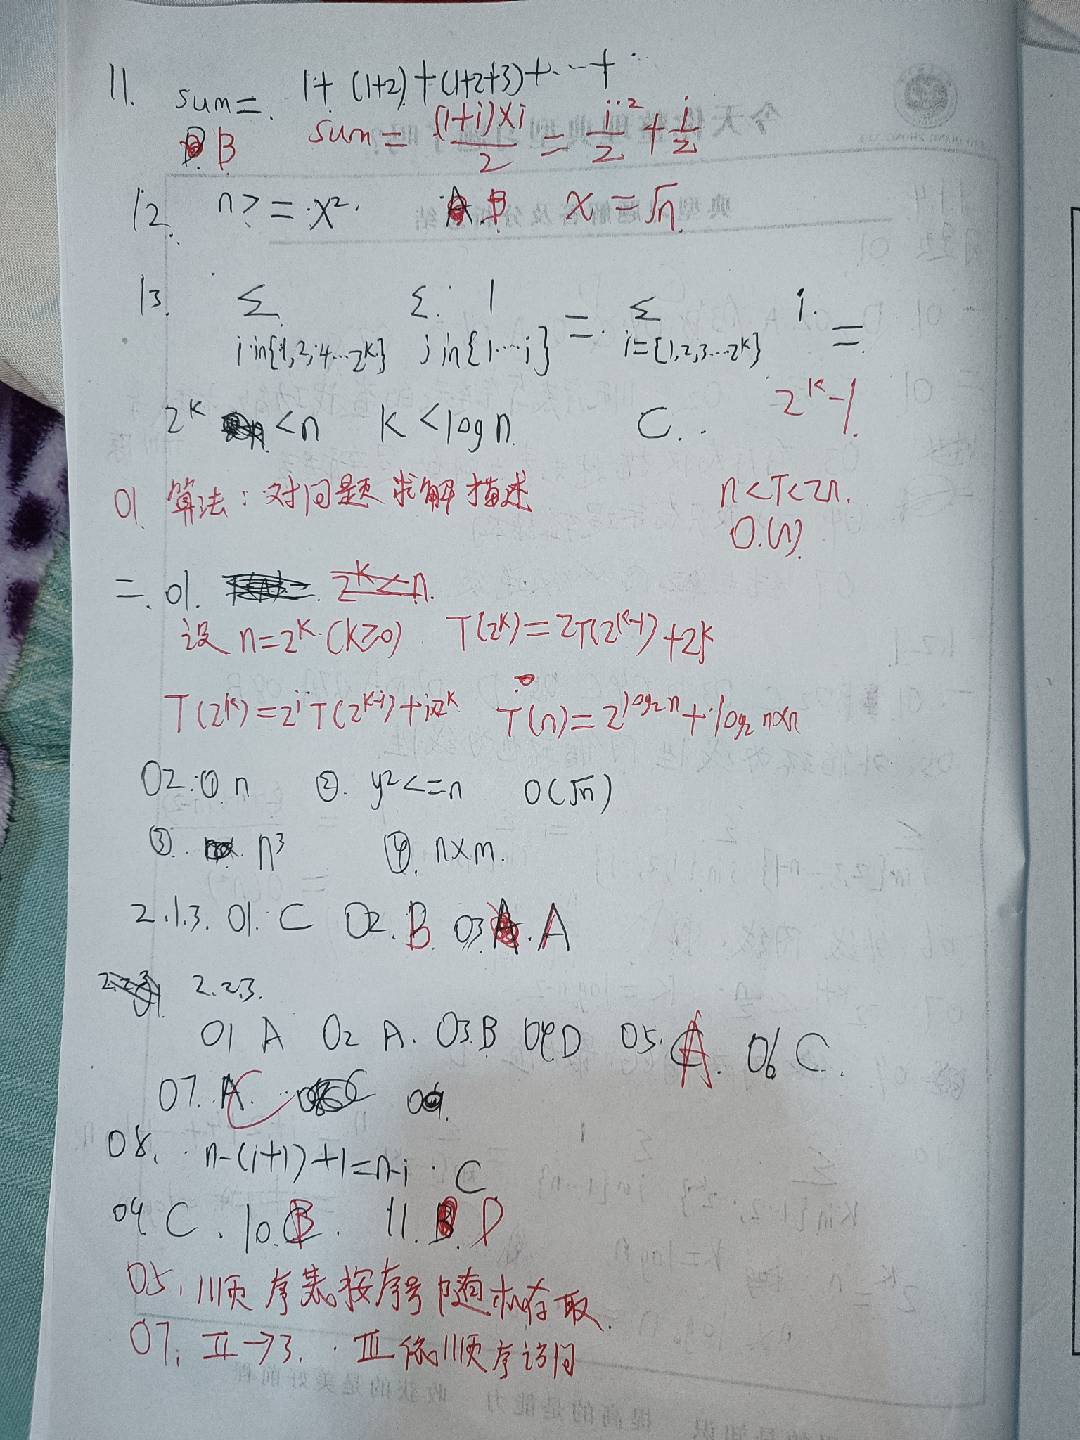 11. sum= 1+(1+2)+(1+2+3)+...+
B sum=(1+i)×i/2=i²/2+i/2
12. n>=x². B x=√n
13. Σ Σ 1 = Σ i =
i in{1,2,4...2^k} j in{1...i} i={1,2,3...2^k}
2^k-1
2^k <n k<log n C.
01 算法:对问题求解描述 n<T<2n.
O(n)
二.01.
设 n=2^k(k≥0) T(2^k)=2T(2^(k-1))+2^k
T(2^k)=2^i T(2^(k-i))+i2^k T(n)=2^(log₂n)+log₂n×n
02.① n ②. y²<=n O(√n)
③. n³ ④. n×m.
2.1.3. 01. C 02. B 03. A
2.2.3.
01 A 02 A. 03.B 04D 05. A. 06 C.
07. C
08. n-(i+1)+1=n-i. C
09 C. 10. B. 11. D
05. 顺序表按序号随机存取.
07. II→3. III 依顺序访问